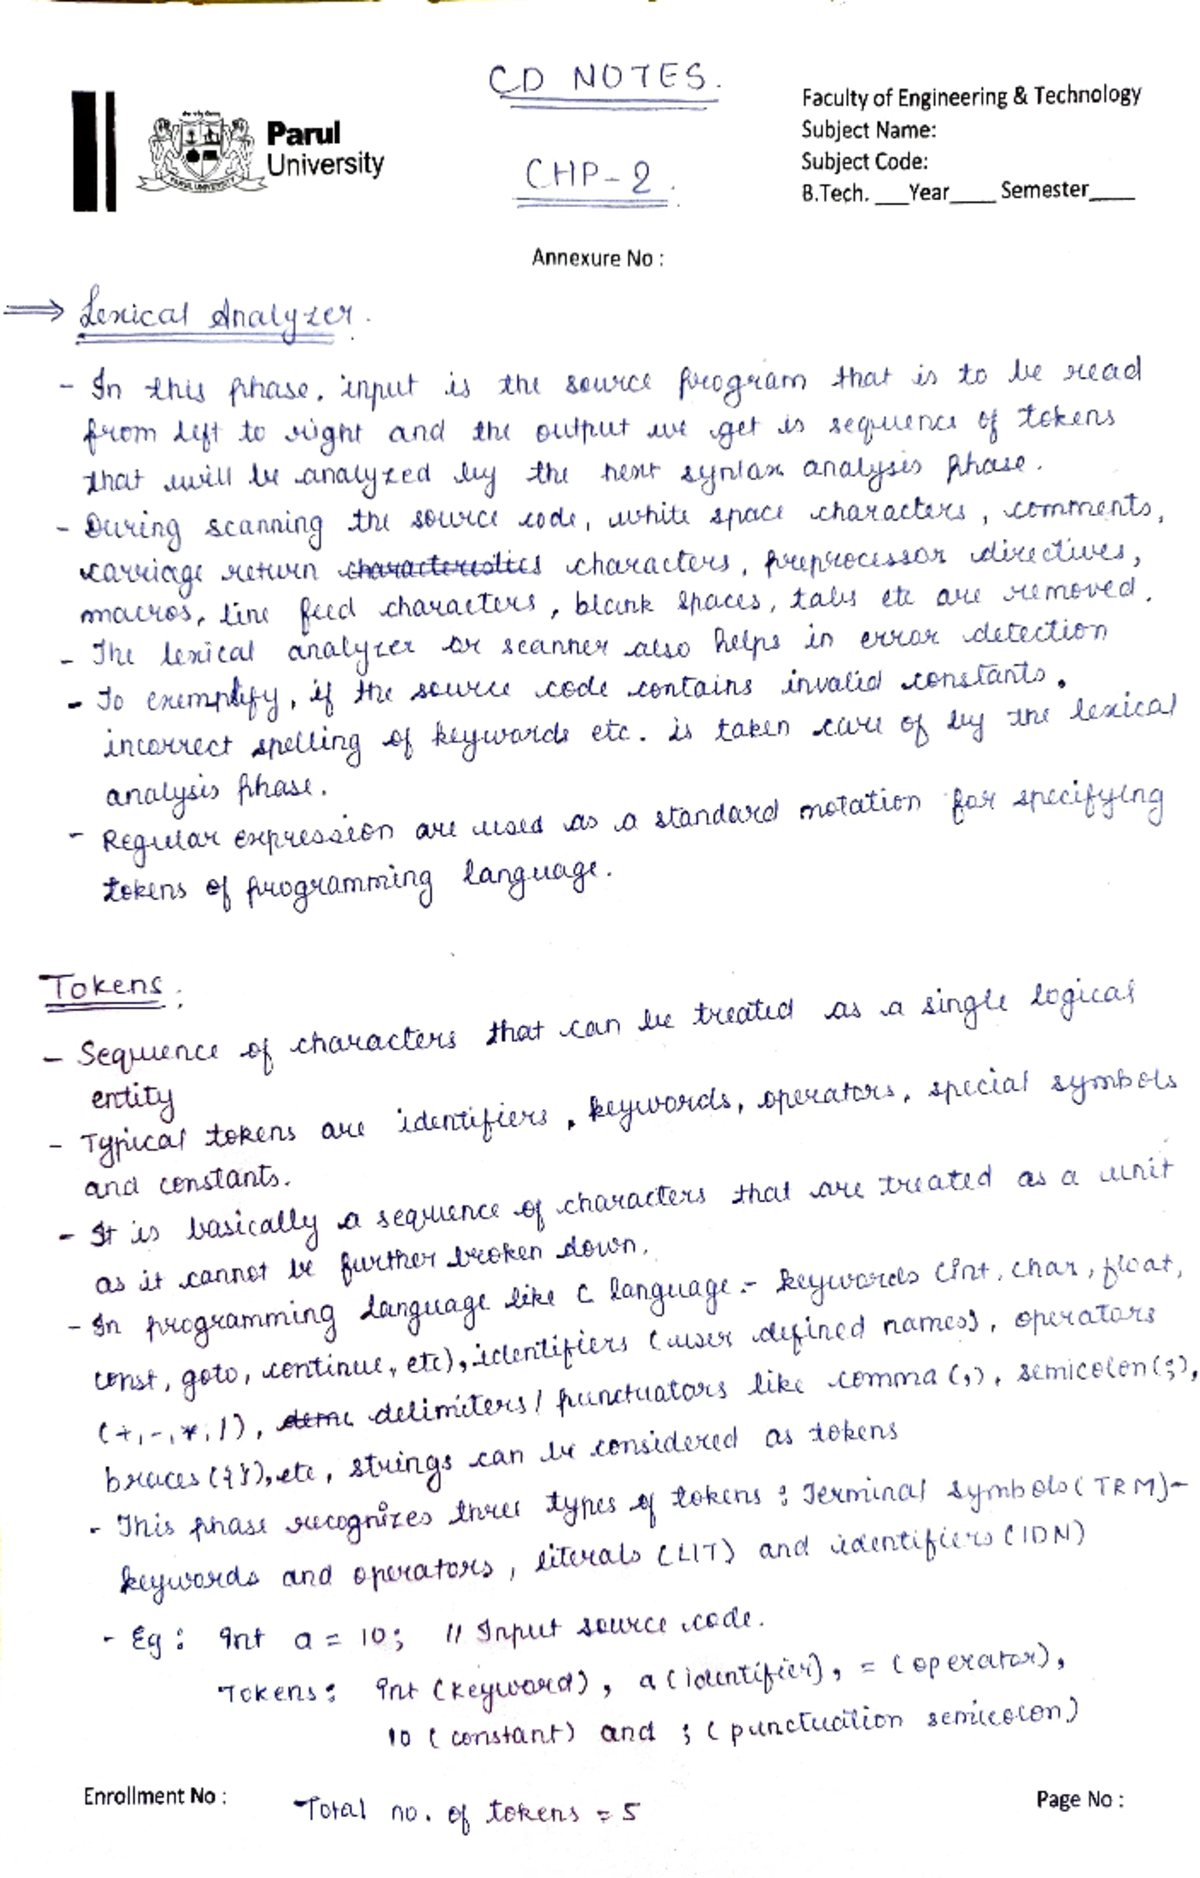 CD NOTES.
Parul
University
PARUL UNIVERSITY
CHP-2.
Faculty of Engineering & Technology
Subject Name:
Subject Code:
B.Tech. ___Year____ Semester____
Annexure No :
⇒ Lexical Analyzer.
- In this phase, input is the source program that is to be read
from left to right and the output we get is sequence of tokens
that will be analyzed by the next syntax analysis phase.
- During scanning the source code, white space characters, comments,
carriage return characteristics characters, preprocessor directives,
macros, line feed characters, blank spaces, tabs etc are removed.
- The lexical analyzer or scanner also helps in error detection
- To exemplify, if the source code contains invalid constants,
incorrect spelling of keywords etc. is taken care of by the lexical
analysis phase.
- Regular expression are used as a standard notation for specifying
tokens of programming language.
Tokens:
- Sequence of characters that can be treated as a single logical
entity
- Typical tokens are identifiers, keywords, operators, special symbols
and constants.
- It is basically a sequence of characters that are treated as a unit
as it cannot be further broken down.
- In programming language like C language - keywords (int, char, float,
const, goto, continue, etc), identifiers (user defined names), operators
(+, -, *, /), delimiters / punctuators like comma (,), semicolon (;),
braces ({ }), etc, strings can be considered as tokens
- This phase recognizes three types of tokens : Terminal Symbols (TRM) -
keywords and operators, literals (LIT) and identifiers (IDN)
- Eg : int a = 10; // Input source code.
Tokens : int (keyword), a (identifier), = (operator),
10 (constant) and ; (punctuation semicolon)
Total no. of tokens = 5
Enrollment No :
Page No :